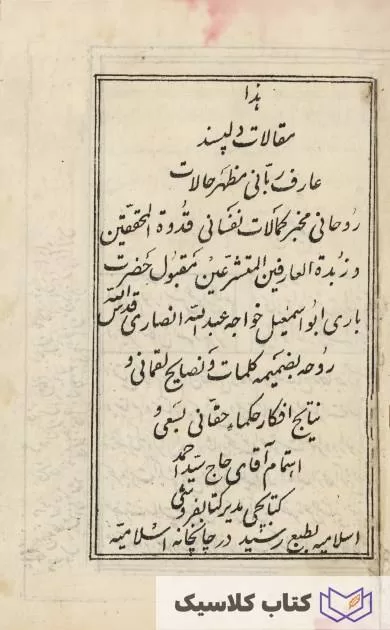 هذا
مقالات دلپسند
عارف ربّانی مظهر حالات
رُوحانی مخبر کمالات نفسانی قُدوة المحققین
و زُبدة العارفین المتشرعین مقبول حضرت
باری ابو اسمعیل خواجه عبد الله انصاری قدس الله
روُحه بضمیمه کلمات و نصایح لقمانی و
نتایج افکار حکماء حقانی بسعی و
اهتمام آقای حاج سیّد احمد
کتابچی مدیر کتابفروشی
اسلامیه بطبع رسید در چاپخانه اسلامیّه
کتاب کلاسیک